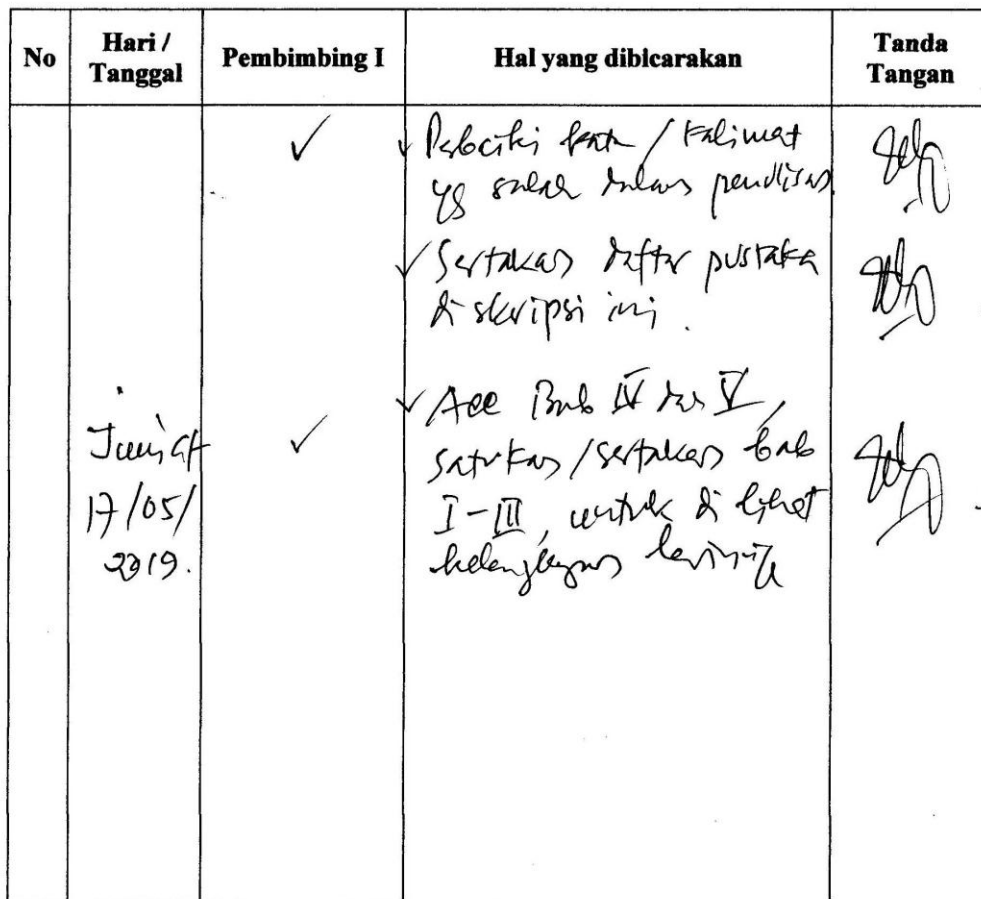 No
Hari /
Tanggal
Pembimbing I
Hal yang dibicarakan
Tanda
Tangan
✓ ✓ Perbaiki kata / kalimat
yg salah dalam penulisan.
✓ Sertakan daftar pustaka
di skripsi ini.
✓ Acc Bab IV dan V,
Jum'at ✓ satukan / sertakan bab
17/05/ I-III, untuk di lihat
2019. kelengkapan